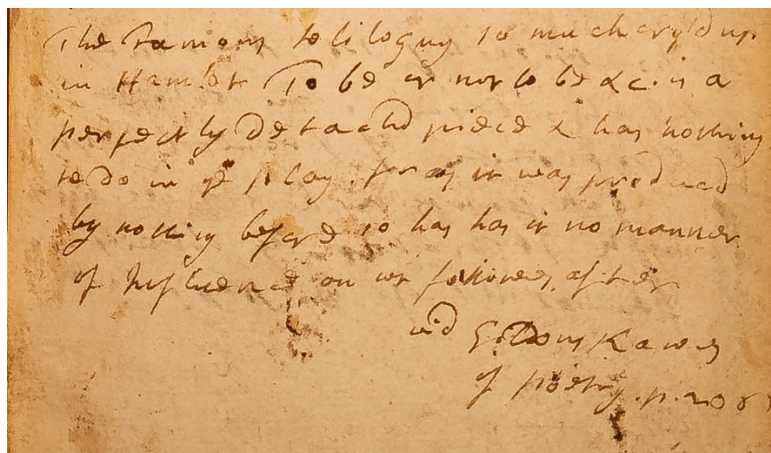 The Famous soliloquy so much cry'd up
in Hamlet To be or not to be &c. is a
perfectly detach'd piece & has nothing
to do in ye play. for as it was produced
by nothing before so has has it no manner
of Influence on wt follows after
vid Gildons Laws
of poetry. p.